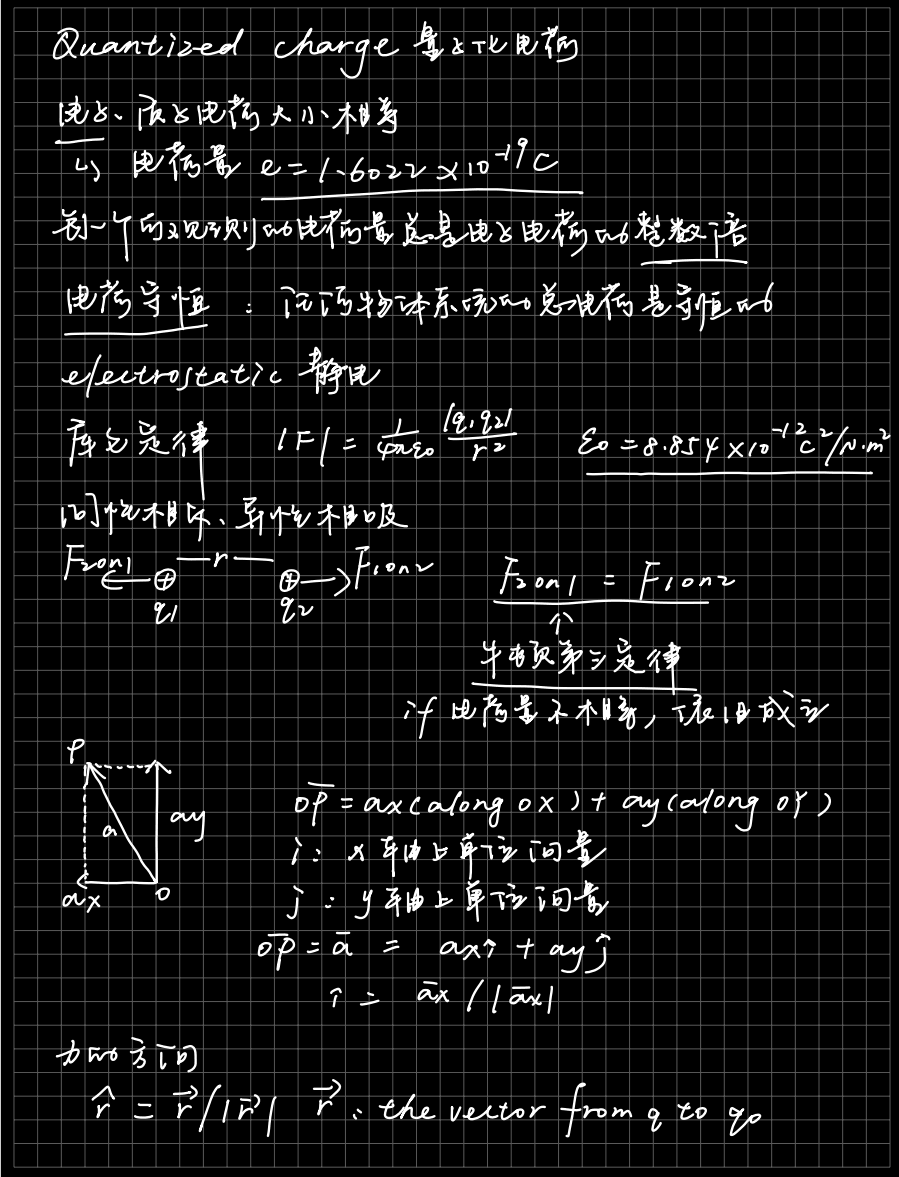 Quantized charge 量子化电荷
电子、质子电荷大小相等
↳ 电荷量 e = 1.6022 × 10⁻¹⁹ C
每一个可观测的电荷量总是电子电荷的整数倍
电荷守恒 : 任何物体系统的总电荷是守恒的
electrostatic 静电
库仑定律 |F| = 1/4πε₀ |q₁q₂|/r² ε₀ = 8.854 × 10⁻¹² C²/N·m²
同性相斥、异性相吸
F2on1 ← ⊕ — r — ⊕ → F1on2
q1 q2
F2on1 = F1on2
↑
牛顿第三定律
if 电荷量不相等, 依旧成立
P
a ay
ax O
OP̅ = ax(along OX) + ay(along OY)
i : x 轴上单位向量
j : y 轴上单位向量
OP̅ = a̅ = axî + ayĵ
î = a̅x / |a̅x|
力的方向
r̂ = r⃗/|r⃗| r⃗ : the vector from q to q₀